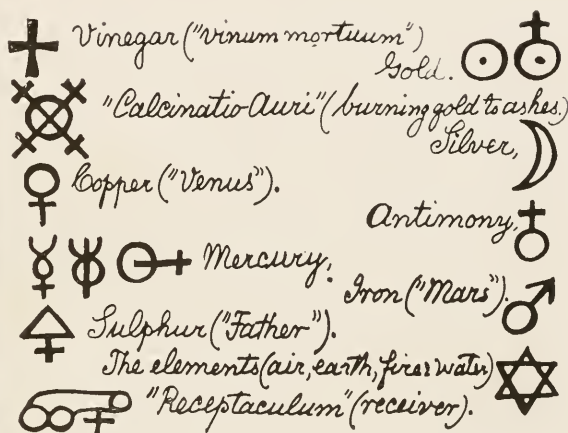 Vinegar ("vinum mortuum")
Gold.
"Calcinatio Auri" (burning gold to ashes.)
Silver,
Copper ("Venus").
Antimony,
Mercury,
Iron ("Mars").
Sulphur ("Father").
The elements (air, earth, fire & water)
"Receptaculum" (receiver).